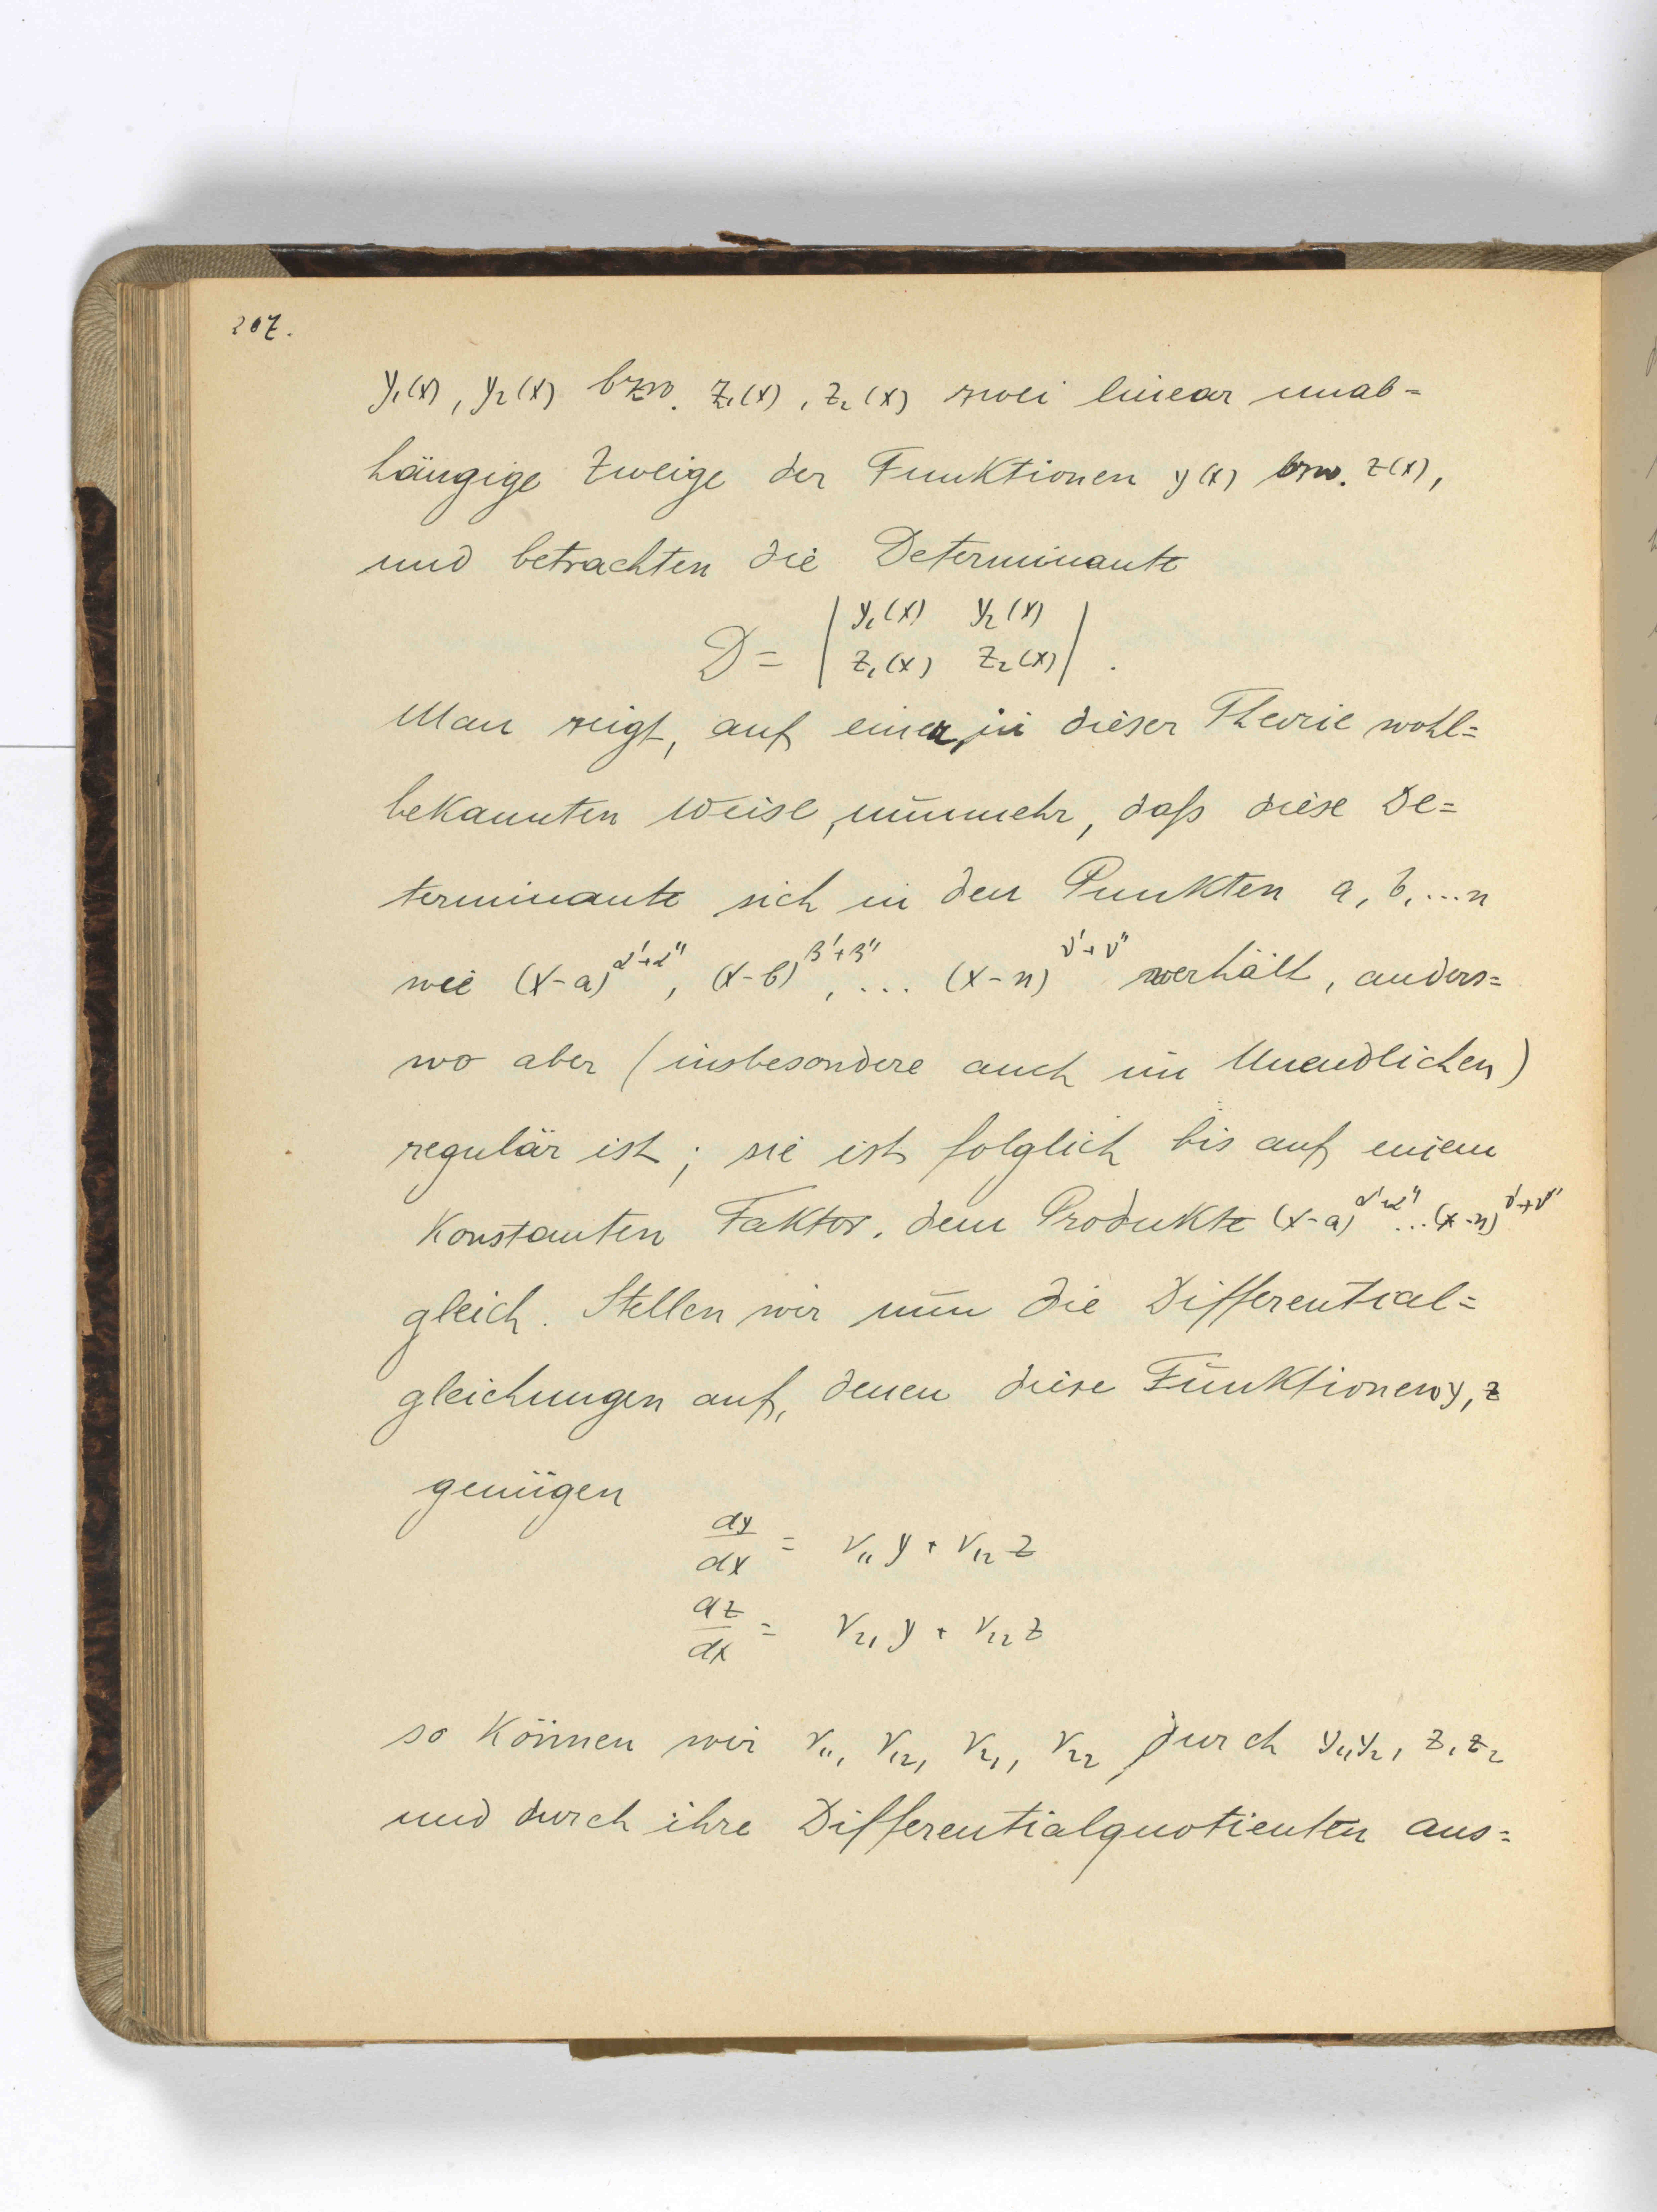 207.
y₁(x), y₂(x) bzw. z₁(x), z₂(x) zwei linear unab=
hängige Zweige der Funktionen y(x) bzw. z(x),
und betrachten die Determinante
D = | y₁(x) y₂(x) |
| z₁(x) z₂(x) | .
Man zeigt, auf einer, in dieser Theorie wohl=
bekannten Weise, nunmehr, daß diese De=
terminante sich in den Punkten a, b, ... n
wie (x-a)^{α'+α''}, (x-b)^{β'+β''}, ... (x-n)^{ν'+ν''} verhält, anders=
wo aber (insbesondere auch im Unendlichen)
regulär ist; sie ist folglich bis auf einem
Konstanten Faktor, dem Produkte (x-a)^{α'+α''}...(x-n)^{ν'+ν''}
gleich. Stellen wir nun die Differential=
gleichungen auf, denen diese Funktionen y, z
genügen
dy/dx = r₁₁ y + r₁₂ z
dz/dx = r₂₁ y + r₂₂ z
so Können wir r₁₁, r₁₂, r₂₁, r₂₂ durch y₁, y₂, z₁ z₂
und durch ihre Differentialquotienten aus=